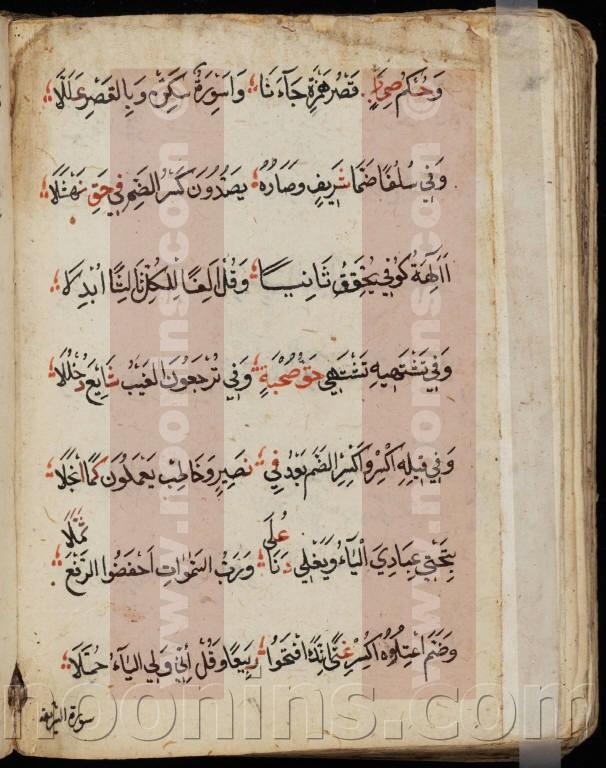 وَحُكْمُ صِحَابٍ قَصْرُ هَمْزَةِ جَآءَنَا وَاَسْوِرَةٌ سَكِّنْ وَبِالْقَصْرِ عُدِّلَا
وَفِي سُلُفًا ضَمَّا شَرِيفٍ وَصَادُهُ يَصُدُّونَ كَسْرُ الضَّمِّ فِي حَقِّ نَهْشَلَا
ءَاَالِهَةٌ كُوفٍ يُحَقِّقُ ثَانِيًا وَقُلْ اَلِفًا لِلْكُلِّ ثَالِثًا اُبْدِلَا
وَفِي تَشْتَهِيهِ تَشْتَهِي حَقُّ صُحْبَةٍ وَفِي تُرْجَعُونَ الْغَيْبُ شَايَعَ دُخْلُلَا
وَفِي قِيلَهِ اكْسِرْ وَاكْسِرِ الضَّمَّ بَعْدُ فِي نَصِيرٍ وَخَاطِبْ يَعْمَلُونَ كَمَا انْجَلَا
بِتَحْتِي عِبَادِيَ الْيَاءُ وَيَغْلِي دَنَا عُلًى وَرَبُّ السَّمٰوَاتِ اخْفِضُوا الرَّفْعَ ثُمَّلَا
وَضَمَّ اعْتِلُوهُ اكْسِرْ غِنًى اِنَّكَ افْتَحُوا رَبِيعًا وَقُلْ اِنِّي وَلِي الْيَاءُ حُمِّلَا
سورة الشريعة
www.noonins.com
www.noonins.com
noonins.com